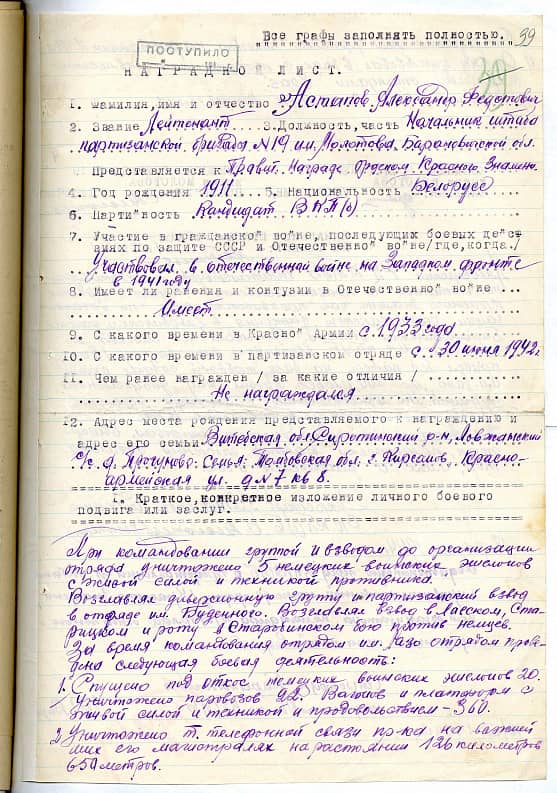 Все графы заполнять полностью. 39
ПОСТУПИЛО
39
НАГРАДНОЙ ЛИСТ.
1. Фамилия, имя и отчество Астапов Александр Федотович
2. Звание Лейтенант 3. Должность, часть Начальник штаба
партизанской бригады N 19 им. Молотова, Барановичской обл.
Представляется к Правит. Награде орденом Красное Знамено
4. Год рождения 1911 5. Национальность Белорусс
6. Партийность Кандидат ВКП(б)
7. Участие в гражданской войне, последующих боевых дейст
виях по защите СССР и Отечественной войне/где, когда./
Участвовал в отечественной войне на Западном фронте
в 1941 году
8. Имеет ли ранения и контузии в Отечественной войне
Имеет
9. С какого времени в Красной Армии с 1933 года
10. С какого времени в партизанском отряде с 30 июня 1942г
11. Чем ранее награжден / за какие отличия /
Не награждался
12. Адрес места рождения представляемого к награждению и
адрес его семьи Витебская обл. Сиротинский р-н, Ловжанский
с/с д. Прогуново. Семья: Тамбовская обл. г. Кирсанов, Красно-
армейская ул. д N 7 кв 8.
I. Краткое, конкретное изложение личного боевого
подвига или заслуг.
При командовании группой и взводом до организации
отряда уничтожено 5 немецких воинских эшелонов
с живой силой и техникой противника.
Возглавлял диверсионную группу и партизанский взвод
в отряде им. Буденного. Возглавлял взвод в Ласском, Ста-
рицком и роту в Старобинском бою против немцев.
За время командования отрядом им. Лазо отрядом прове-
дена следующая боевая деятельность:
1. Спущено под откос немецких воинских эшелонов 20.
Уничтожено паровозов 22. Вагонов и платформ с
живой силой и техникой и продовольствием - 360.
2. Уничтожено т. телефонной связи пр-ка на важней
ших его магистралях на растоянии 126 километров
650 метров.